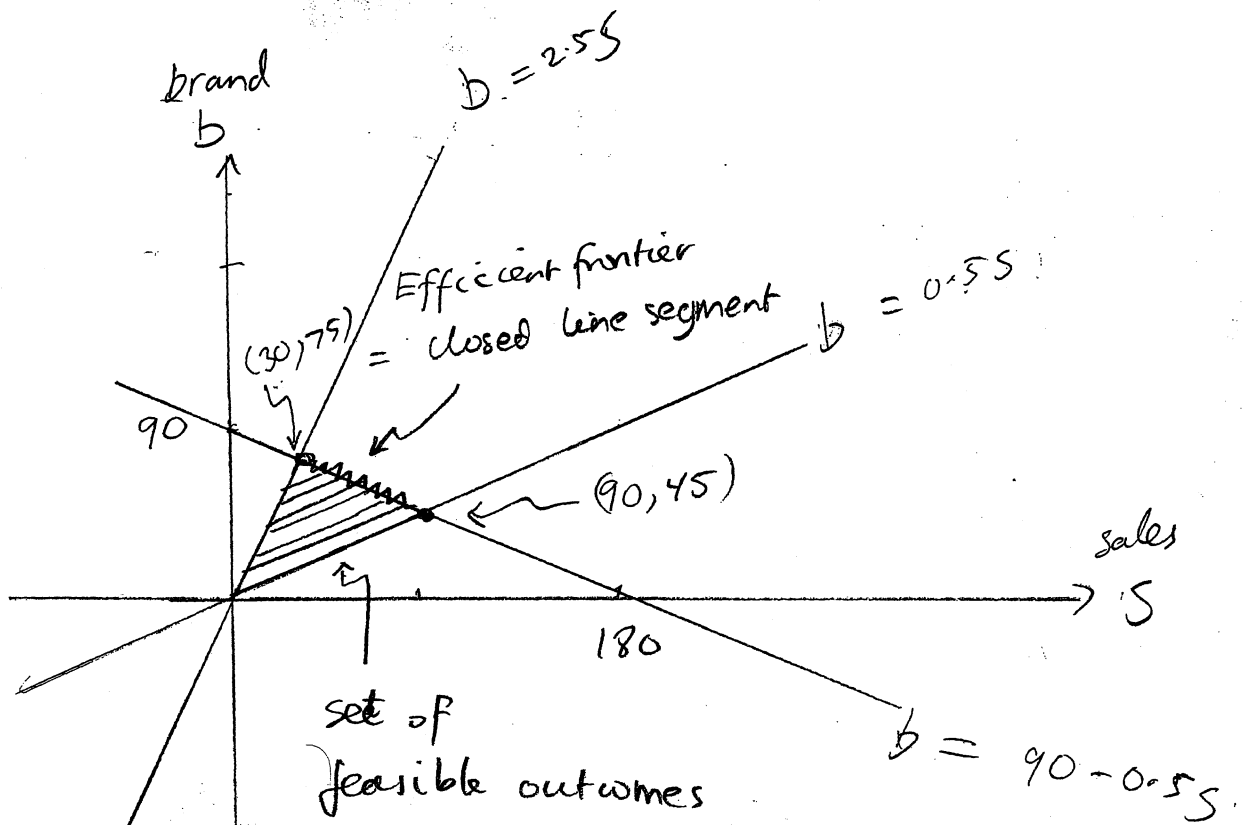 b = 2.5S
brand
b
Efficient frontier
= closed line segment
(30,75)
b = 0.5S
90
(90,45)
sales
S
180
set of
feasible outcomes
b = 90-0.5S